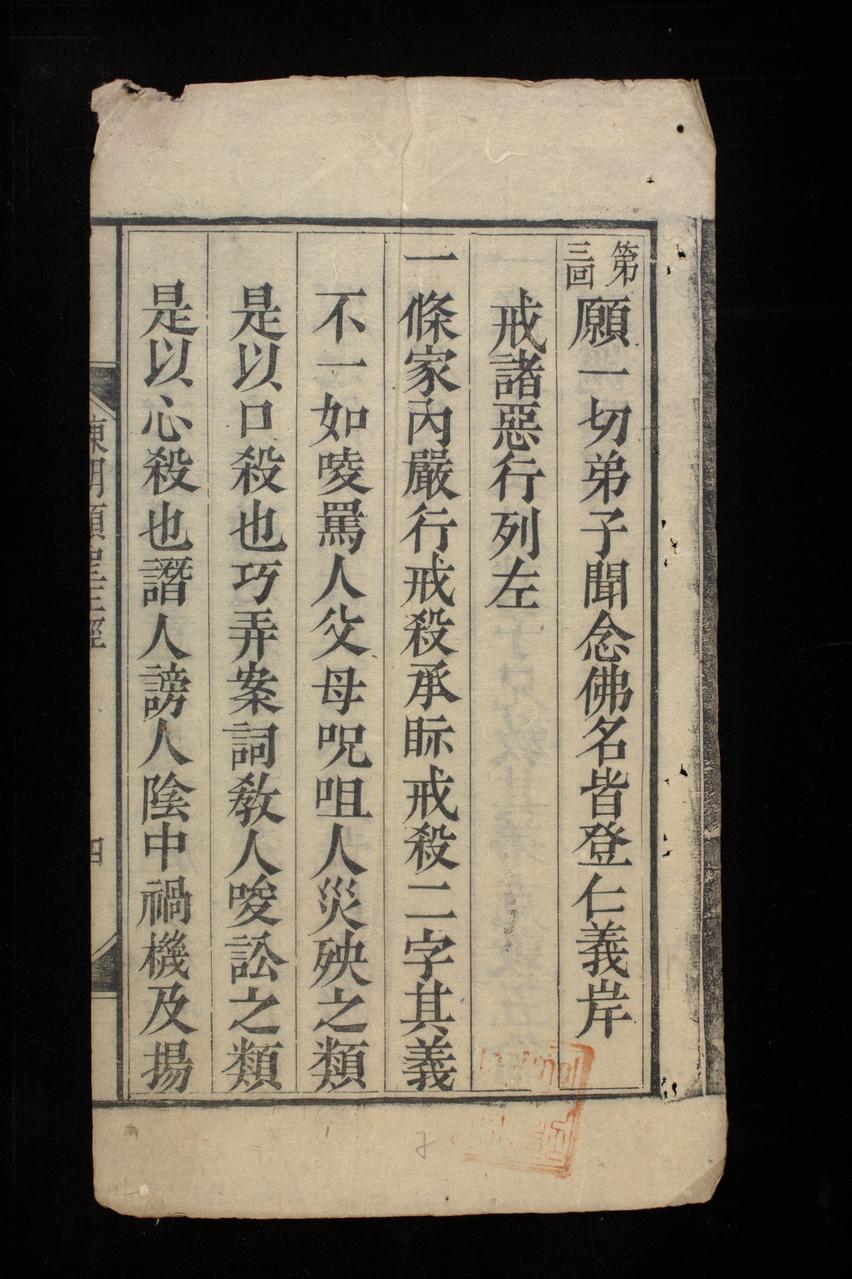 第三回
願一切弟子聞念佛名皆登仁義岸
戒諸惡行列左
一條家內嚴行戒殺承眎戒殺二字其義
不一如唛罵人父母呪咀人災殃之類
是以口殺也巧弄案詞教人唆訟之類
是以心殺也譖人謗人陰中禍機及揚
明
聖經
四